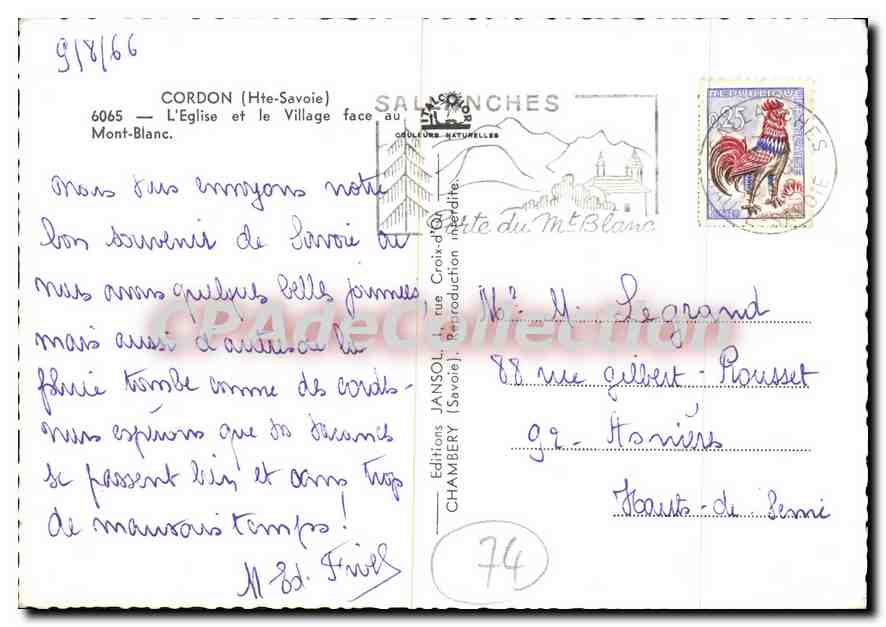 9/8/66
CORDON (Hte-Savoie)
6065 — L'Eglise et le Village face au
Mont-Blanc.
Nous vous envoyons notre
bon souvenir de Savoie où
nous avons quelques belles journées,
mais aussi d'autres où la
pluie tombe comme des cordes -
Nous espérons que vos vacances
se passent bien et sans trop
de mauvais temps !
M Ed.
SALLANCHES
ITALCOLOR
COULEURS NATURELLES
Porte du Mt Blanc
Editions JANSOL, 1, rue Croix-d'Or
CHAMBERY (Savoie). Reproduction interdite.
REPUBLIQUE
0,25
SAVOIE
M. Legrand
88 rue Gilbert - Rousset
92 - Asnières
Hauts-de Seine
74
CPAdeCollection